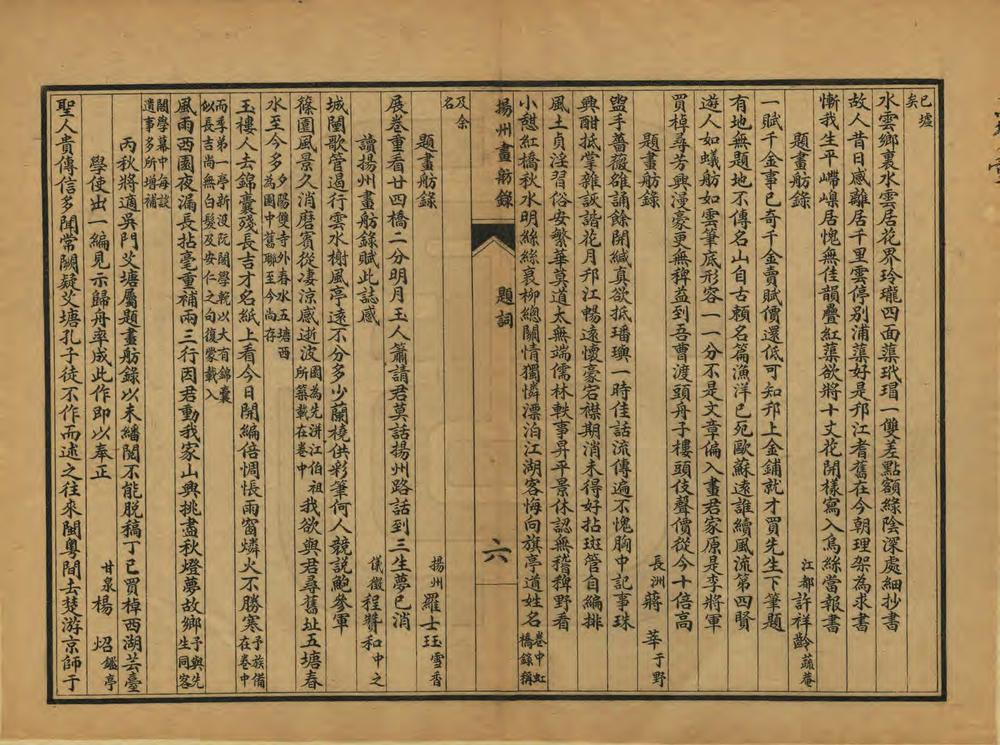 已墟
矣
水雲鄉裏水雲居花界玲瓏四面蕖玳瑁一雙差點額綠陰深處細抄書
故人昔日感離居千里雲停別浦蕖好是邗江耆舊在今朝理架為求書
慚我生平嶰嵲居愧無佳韻疊紅蕖欲將十丈花開樣寫入烏絲當報書
題畫舫錄 江都許祥齡蔬菴
一賦千金事已奇千金賣賦價還低可知邗上金鋪就才買先生下筆題
有地無題地不傳名山自古賴名篇漁洋已死歐蘇遠誰續風流第四賢
遊人如蟻舫如雲筆底形容一一分不是文章偏入畫君家原是李將軍
買棹尋芳興漫豪更無稗益到吾曹渡頭舟子樓頭伎聲價從今十倍高
題畫舫錄 長洲蔣莘于野
盥手薔薇雒誦餘開緘真欲抵璠璵一時佳話流傳遍不愧胸中記事珠
興酣抵掌雜詼諧花月邗江暢遠懷豪宕襟期消未得好拈斑管自編排
風土貞淫習俗安繁華莫道太無端儒林軼事昇平景休認無稽稗野看
小憩紅橋秋水明絲絲衰柳總關情獨憐漂泊江湖客悔向旗亭道姓名卷中虹橋錄稱
揚州畫舫錄 題詞 六
及余
名
題畫舫錄 揚州羅士珏雪香
展卷重看廿四橋二分明月玉人簫請君莫話揚州路話到三生夢已消
讀揚州畫舫錄賦此誌感 儀徵程贊和中之
城闉歌管遏行雲水榭風亭遠不分多少蘭橈供彩筆何人競說鮑參軍
篠園風景久消磨賓從凄涼感逝波園為先洴江伯祖所築載在卷中我欲與君尋舊址五塘春
水至今多夕陽雙寺外春水五塘西為園中舊聯至今尚存
玉樓人去錦囊殘長吉才名紙上看今日開編倍惆悵雨窗燐火不勝寒予族備在卷中
而季第一亭新沒阮閣學輓以大百錦囊似長吉尚無白髮及安仁之句復蒙載入
風雨西園夜漏長拈毫重補兩三行因君動我家山興挑盡秋燈夢故鄉予與先生同客
閣學幕中每談遺事多所增補
丙秋將適吳門艾塘屬題畫舫錄以未繙閱不能脫稿丁已買棹西湖芸臺
學使出一編見示歸舟率成此作即以奉正 甘泉楊炤鑑亭
聖人貴傳信多聞常闕疑艾塘孔子徒不作而述之往來閩粵間去楚游京師于